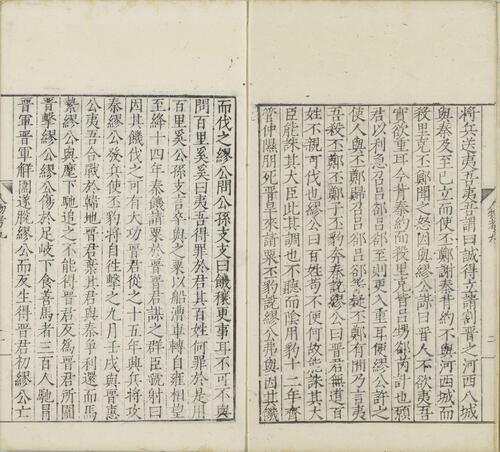 將兵送夷吾夷吾謂曰誠得立請割晉之河西八城
與秦及至已立而使丕鄭謝秦背約不與河西城而
殺里克丕鄭聞之恐因與繆公謀曰晉人不欲夷吾
實欲重耳今背秦約而殺里克皆呂甥郤芮計也願
君以利急召呂郤呂郤至則更入重耳便繆公許之
使人與丕鄭歸召呂郤呂郤等疑丕鄭有間乃言夷
吾殺丕鄭丕鄭子丕豹奔秦說繆公曰晉君無道百
姓不親可伐也繆公曰百姓苟不便何故能誅其大
臣能誅其大臣此其調也不聽而陰用豹十二年齊
管仲隰朋死晉旱來請粟丕豹說繆公弗與因其饑
而伐之繆公問公孫支支曰饑穰更事耳不可不與
問百里奚奚曰夷吾得罪於君其百姓何罪於是用
百里奚公孫支言卒與之粟以船漕車轉自雍相望
至絳十四年秦饑請粟於晉晉君謀之群臣虢射曰
因其饑伐之可有大功晉君從之十五年興兵將攻
秦繆公發兵使丕豹將自往擊之九月壬戌與晉惠
公夷吾合戰於韓地晉君棄其君與秦爭利還而馬
騺繆公與麾下馳追之不能得晉君反為晉君所圍
晉擊繆公繆公傷於是岐下食善馬者三百人馳冒
晉軍晉軍解圍遂脫繆公而反生得晉君初繆公亡